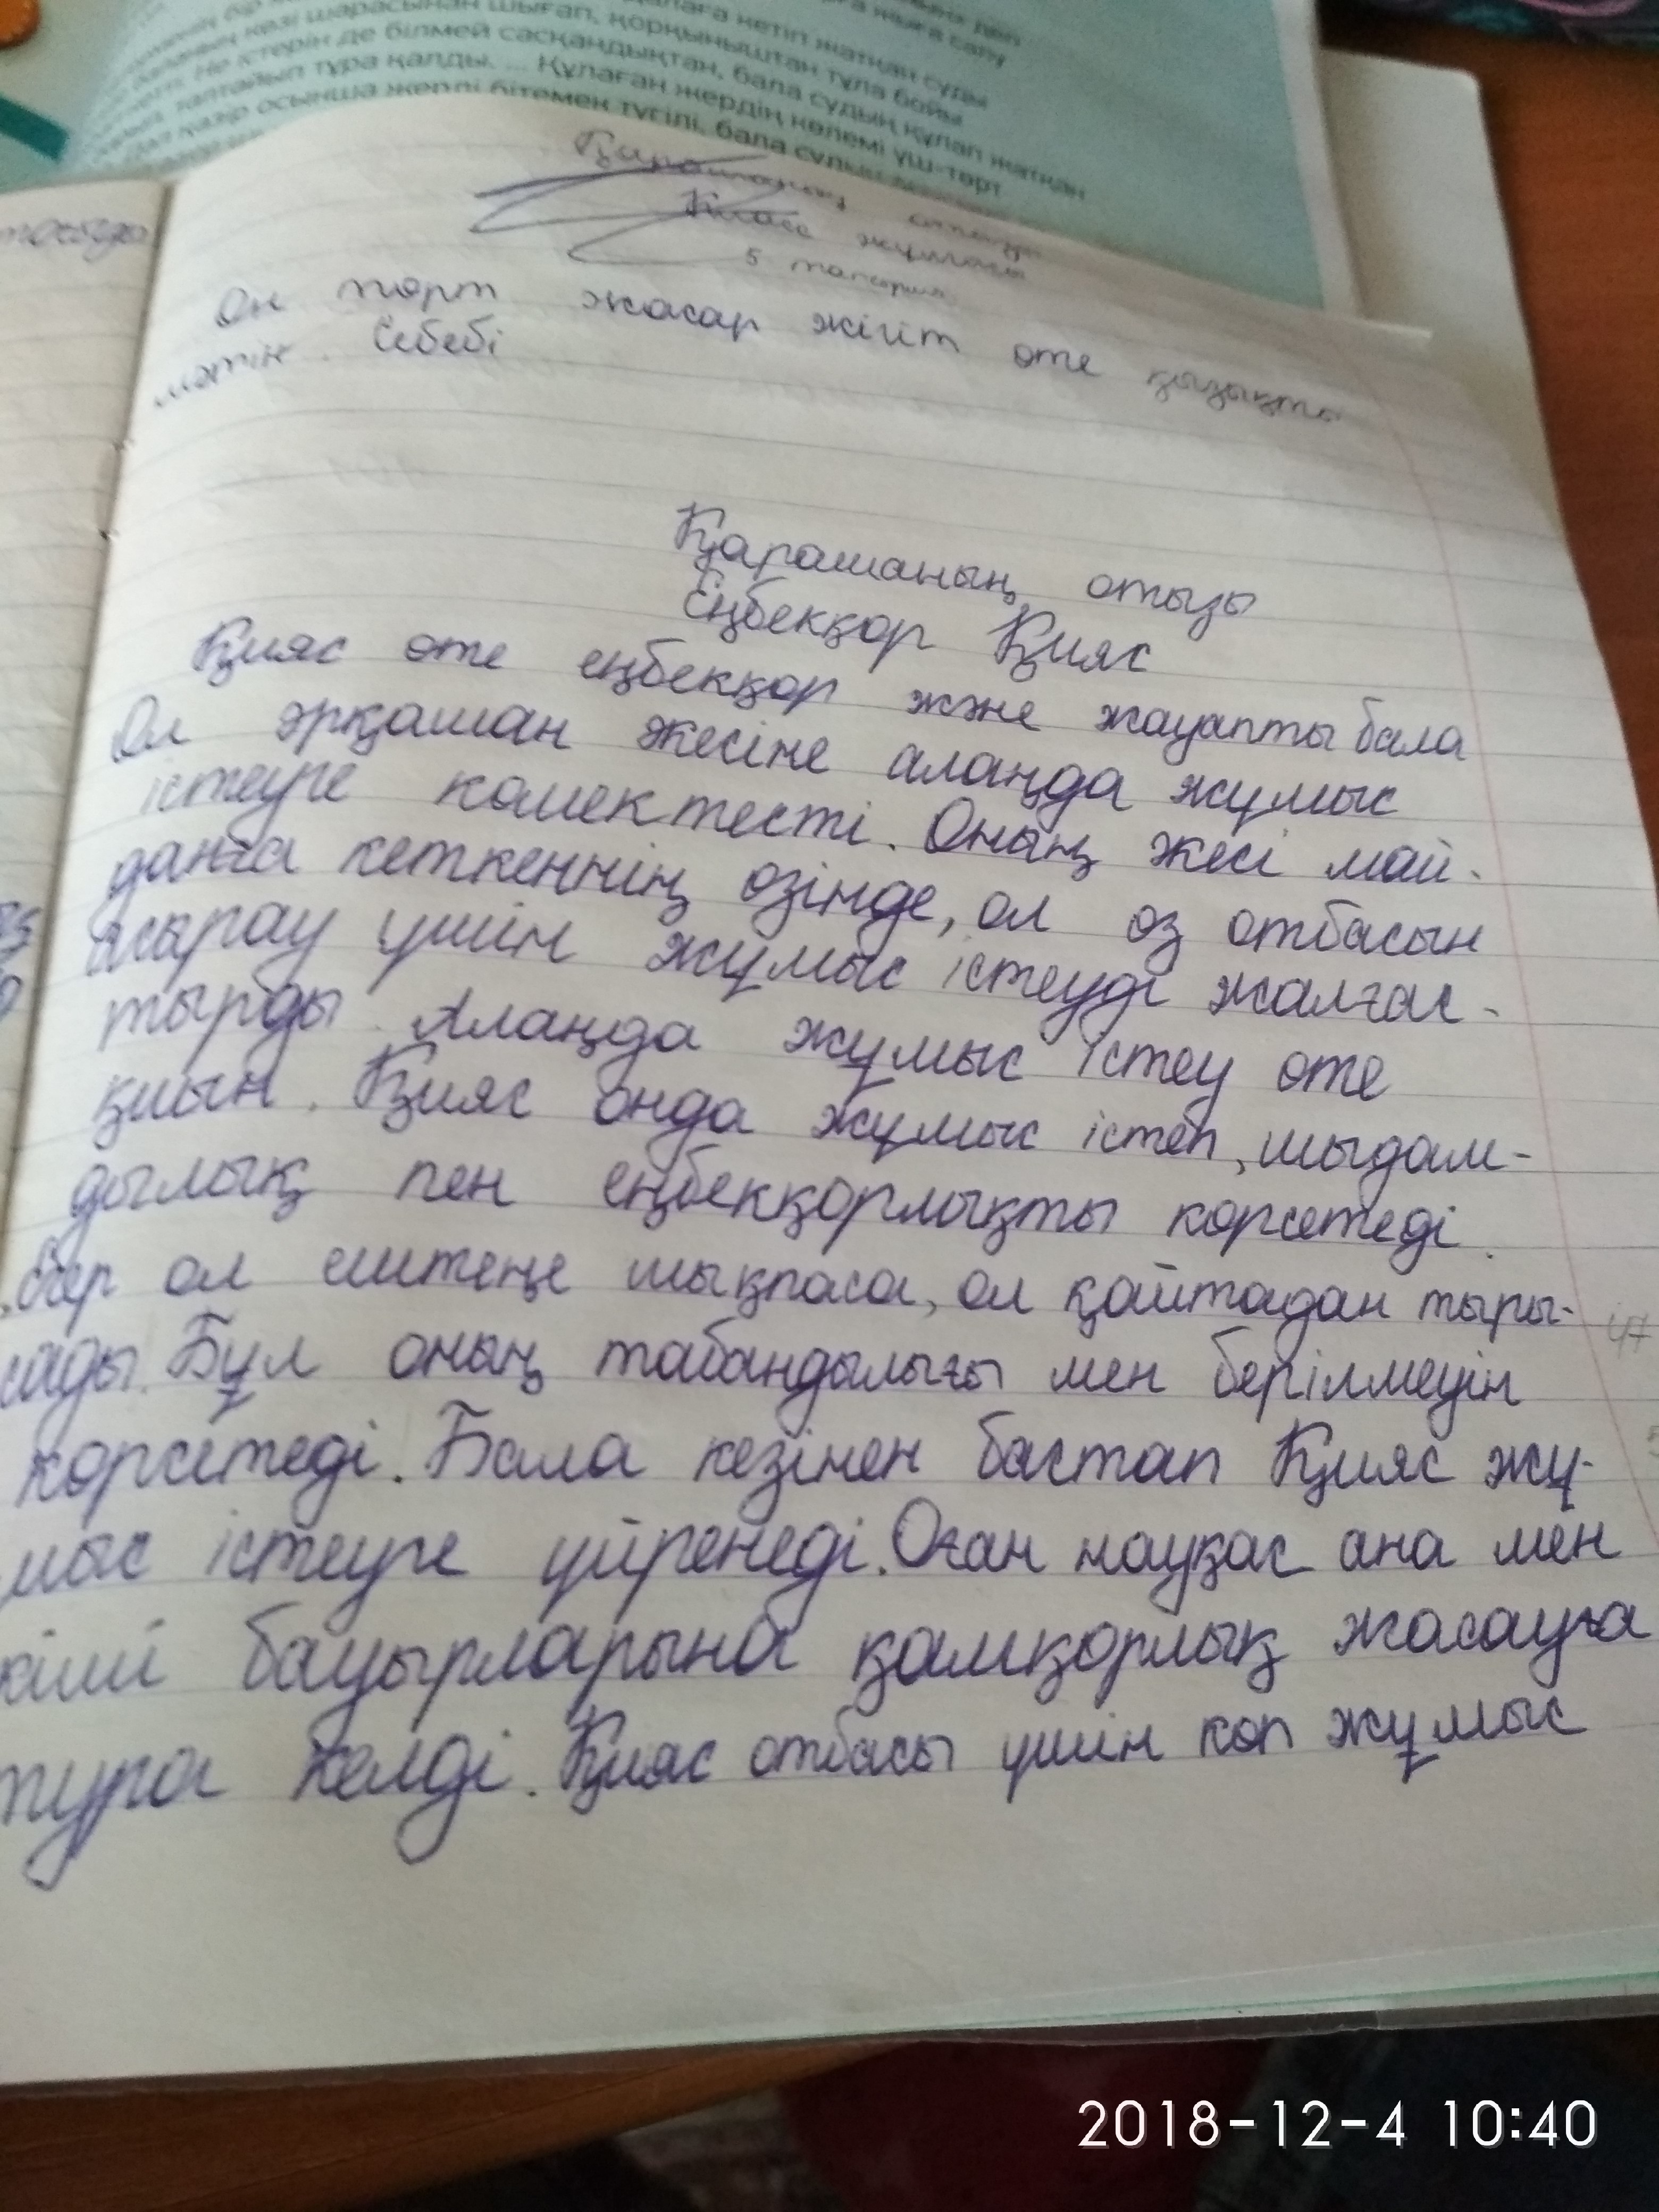 баланың көзі шарасынан шығып, қорқыныштан тұла бойы
Не істерін де білмей сасқандықтан, бала судың құлап жатқан
тұра қалды. ... Құлаған жердің көлемі үш-төрт
қазір осынша жерді бітемек түгілі, бала
Қарашаның отызы
Класс жұмысы
5 тапсырма
Он төрт жасар жігіт өте қызықты
мәтін. Себебі
Қарашаның отызы
Еңбекқор Қияс
Қияс өте еңбекқор және жауапты бала
Ол әрқашан әкесіне алаңда жұмыс
істеуге көмектесті. Оның әкесі май-
данға кеткеннің өзінде, ол өз отбасын
асырау үшін жұмыс істеуді жалғас-
тырды. Алаңда жұмыс істеу өте
қиын. Қияс онда жұмыс істеп, шыдам-
дылық пен еңбекқорлықты көрсетеді.
Егер ол ештеңе шықпаса, ол қайтадан тыры-
сады. Бұл оның табандылығы мен берілмеуін
көрсетеді. Бала кезінен бастап Қияс жұ-
мыс істеуге үйренеді. Оған науқас ана мен
кіші бауырларына қамқорлық жасауға
тура келді. Қияс отбасы үшін көп жұмыс
2018-12-4 10:40